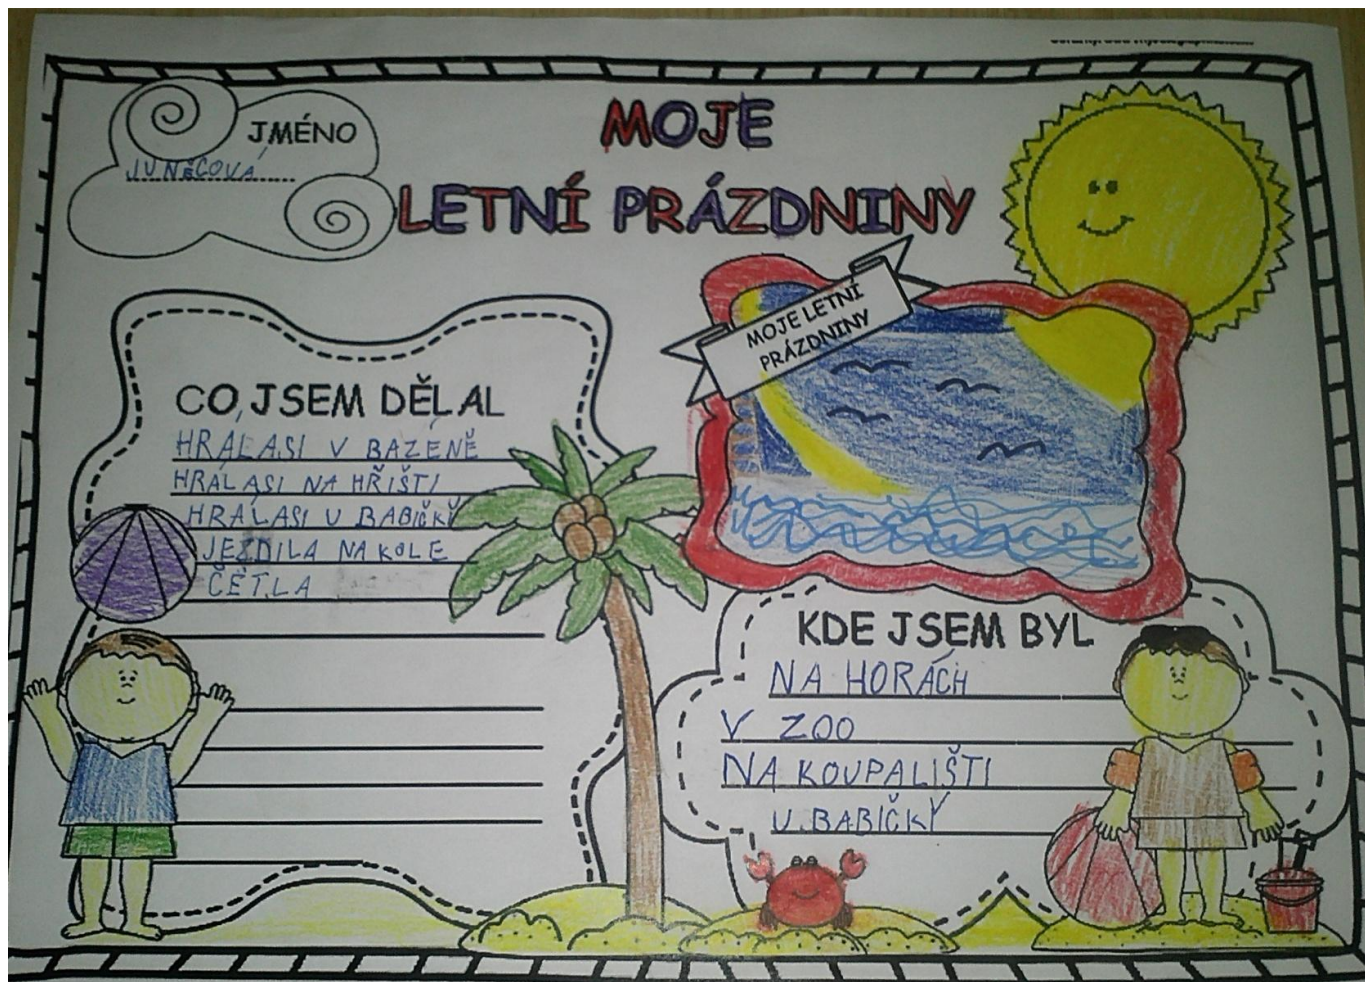 JMÉNO
JUNĚCOVÁ
MOJE
LETNÍ PRÁZDNINY
MOJE LETNÍ
PRÁZDNINY
CO JSEM DĚLAL
HRÁLASI V BAZÉNĚ
HRÁLASI NA HŘIŠTI
HRÁLASI U BABIČKY
JEZDILA NA KOLE
ČETLA
KDE JSEM BYL
NA HORÁCH
V ZOO
NA KOUPALIŠTI
U BABIČKY